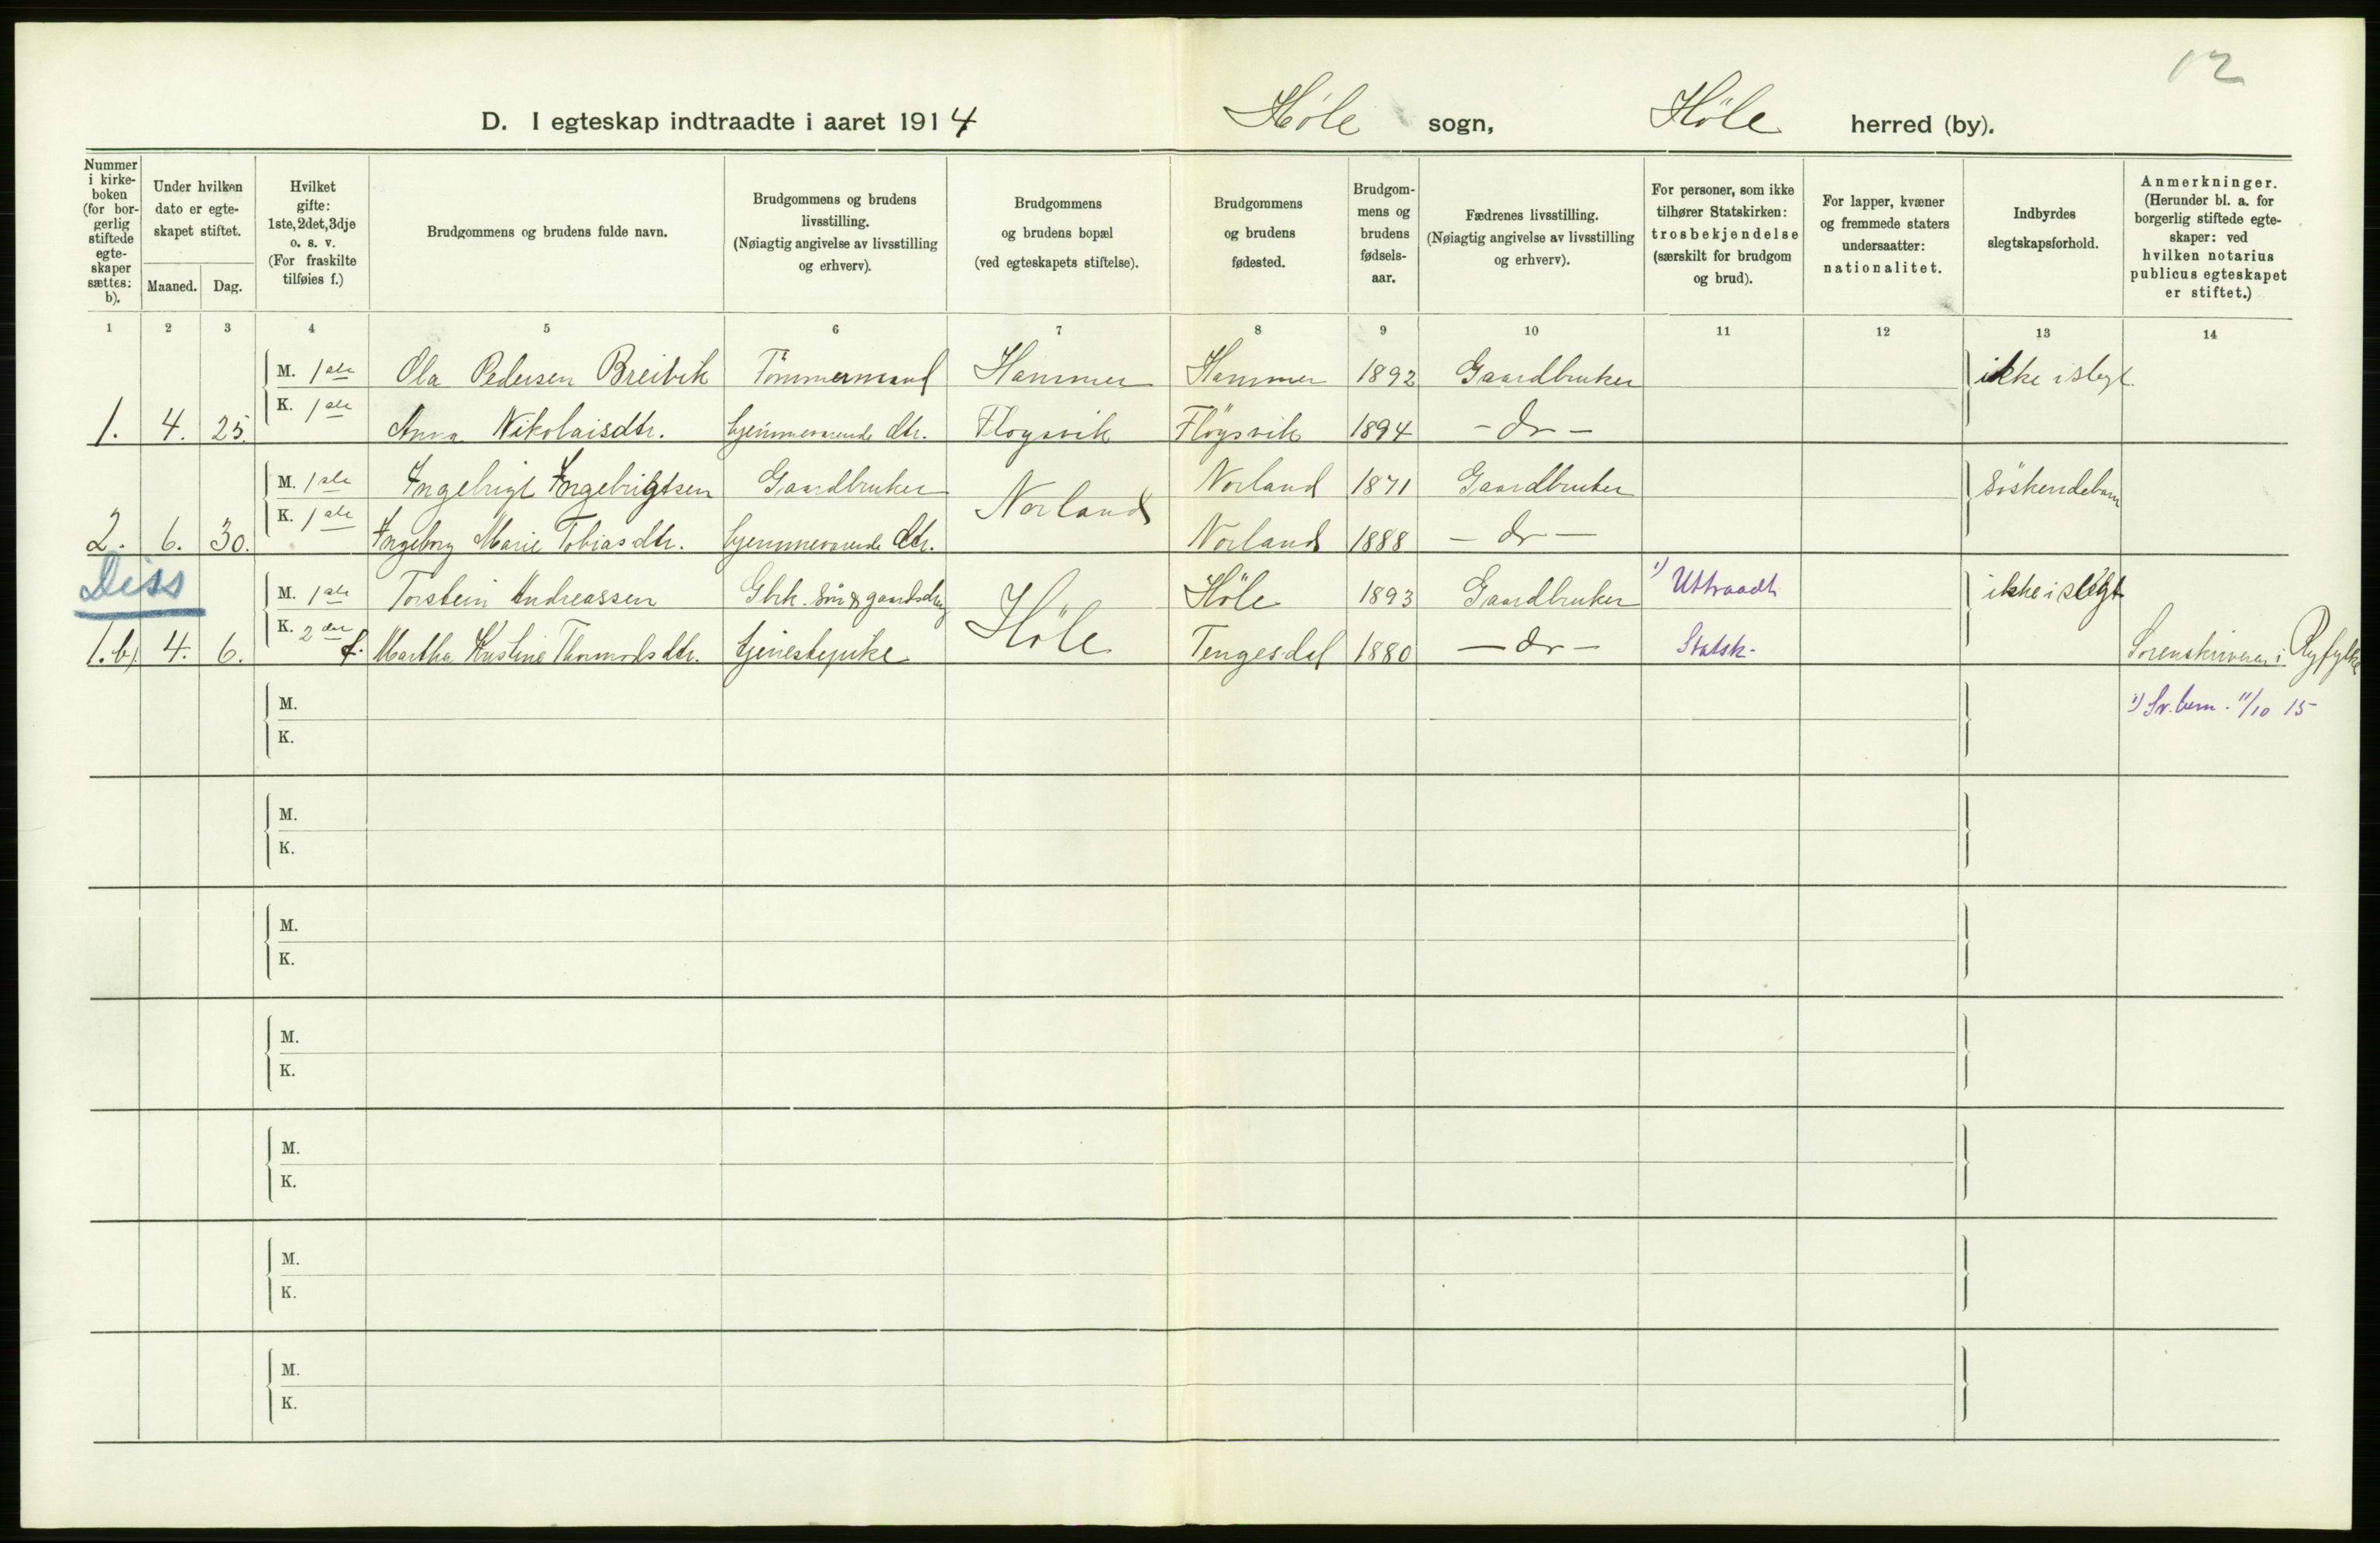 12
D. I egteskap indtraadte i aaret 1914 Høle sogn, Høle herred (by).
Nummer i kirke-boken (for bor-gerlig stiftede egte-skaper sættes: b).
Under hvilken dato er egte-skapet stiftet.
Maaned. Dag.
Hvilket gifte: 1ste, 2det, 3dje o. s. v. (For fraskilte tilføies f.)
Brudgommens og brudens fulde navn.
Brudgommens og brudens livsstilling. (Nøiagtig angivelse av livsstilling og erhverv).
Brudgommens og brudens bopæl (ved egteskapets stiftelse).
Brudgommens og brudens fødested.
Brudgom-mens og brudens fødsels-aar.
Fædrenes livsstilling. (Nøiagtig angivelse av livsstilling og erhverv).
For personer, som ikke tilhører Statskirken: trosbekjendelse (særskilt for brudgom og brud).
For lapper, kvæner og fremmede staters undersaatter: nationalitet.
Indbyrdes slegtskapsforhold.
Anmerkninger. (Herunder bl. a. for borgerlig stiftede egte-skaper: ved hvilken notarius publicus egteskapet er stiftet.)
1 2 3 4 5 6 7 8 9 10 11 12 13 14
M. 1ste Ola Pedersen Breivik Tömmermand Hammer Hammer 1892 Gaardbruker ikke i slegt.
1. 4. 25. K. 1ste Anna Nikolaisdtr. hjemmeværende dtr. Fløysvik Fløysvik 1894 - do -
M. 1ste Ingebrigt Ingebrigtsen Gaardbruker Norland Norland 1871 Gaardbruker Söskendebarn
2. 6. 30. K. 1ste Ingeborg Marie Tobiasdtr. hjemmeværende dtr. Norland 1888 - do -
Diss
M. 1ste Torstein Andreassen Gbrk. sön & gaardsdreng Höle Höle 1893 Gaardbruker 1) Uttraadt ikke i slegt
1.b) 4. 6. K. 2den f. Martha Kristine Thormodsdtr. tjenestepike Tengesdal 1880 - do - Statsk. Sorenskriveren i Ryfylke
1) Sr. bem. 11/10 15
M.
K.
M.
K.
M.
K.
M.
K.
M.
K.
M.
K.
M.
K.